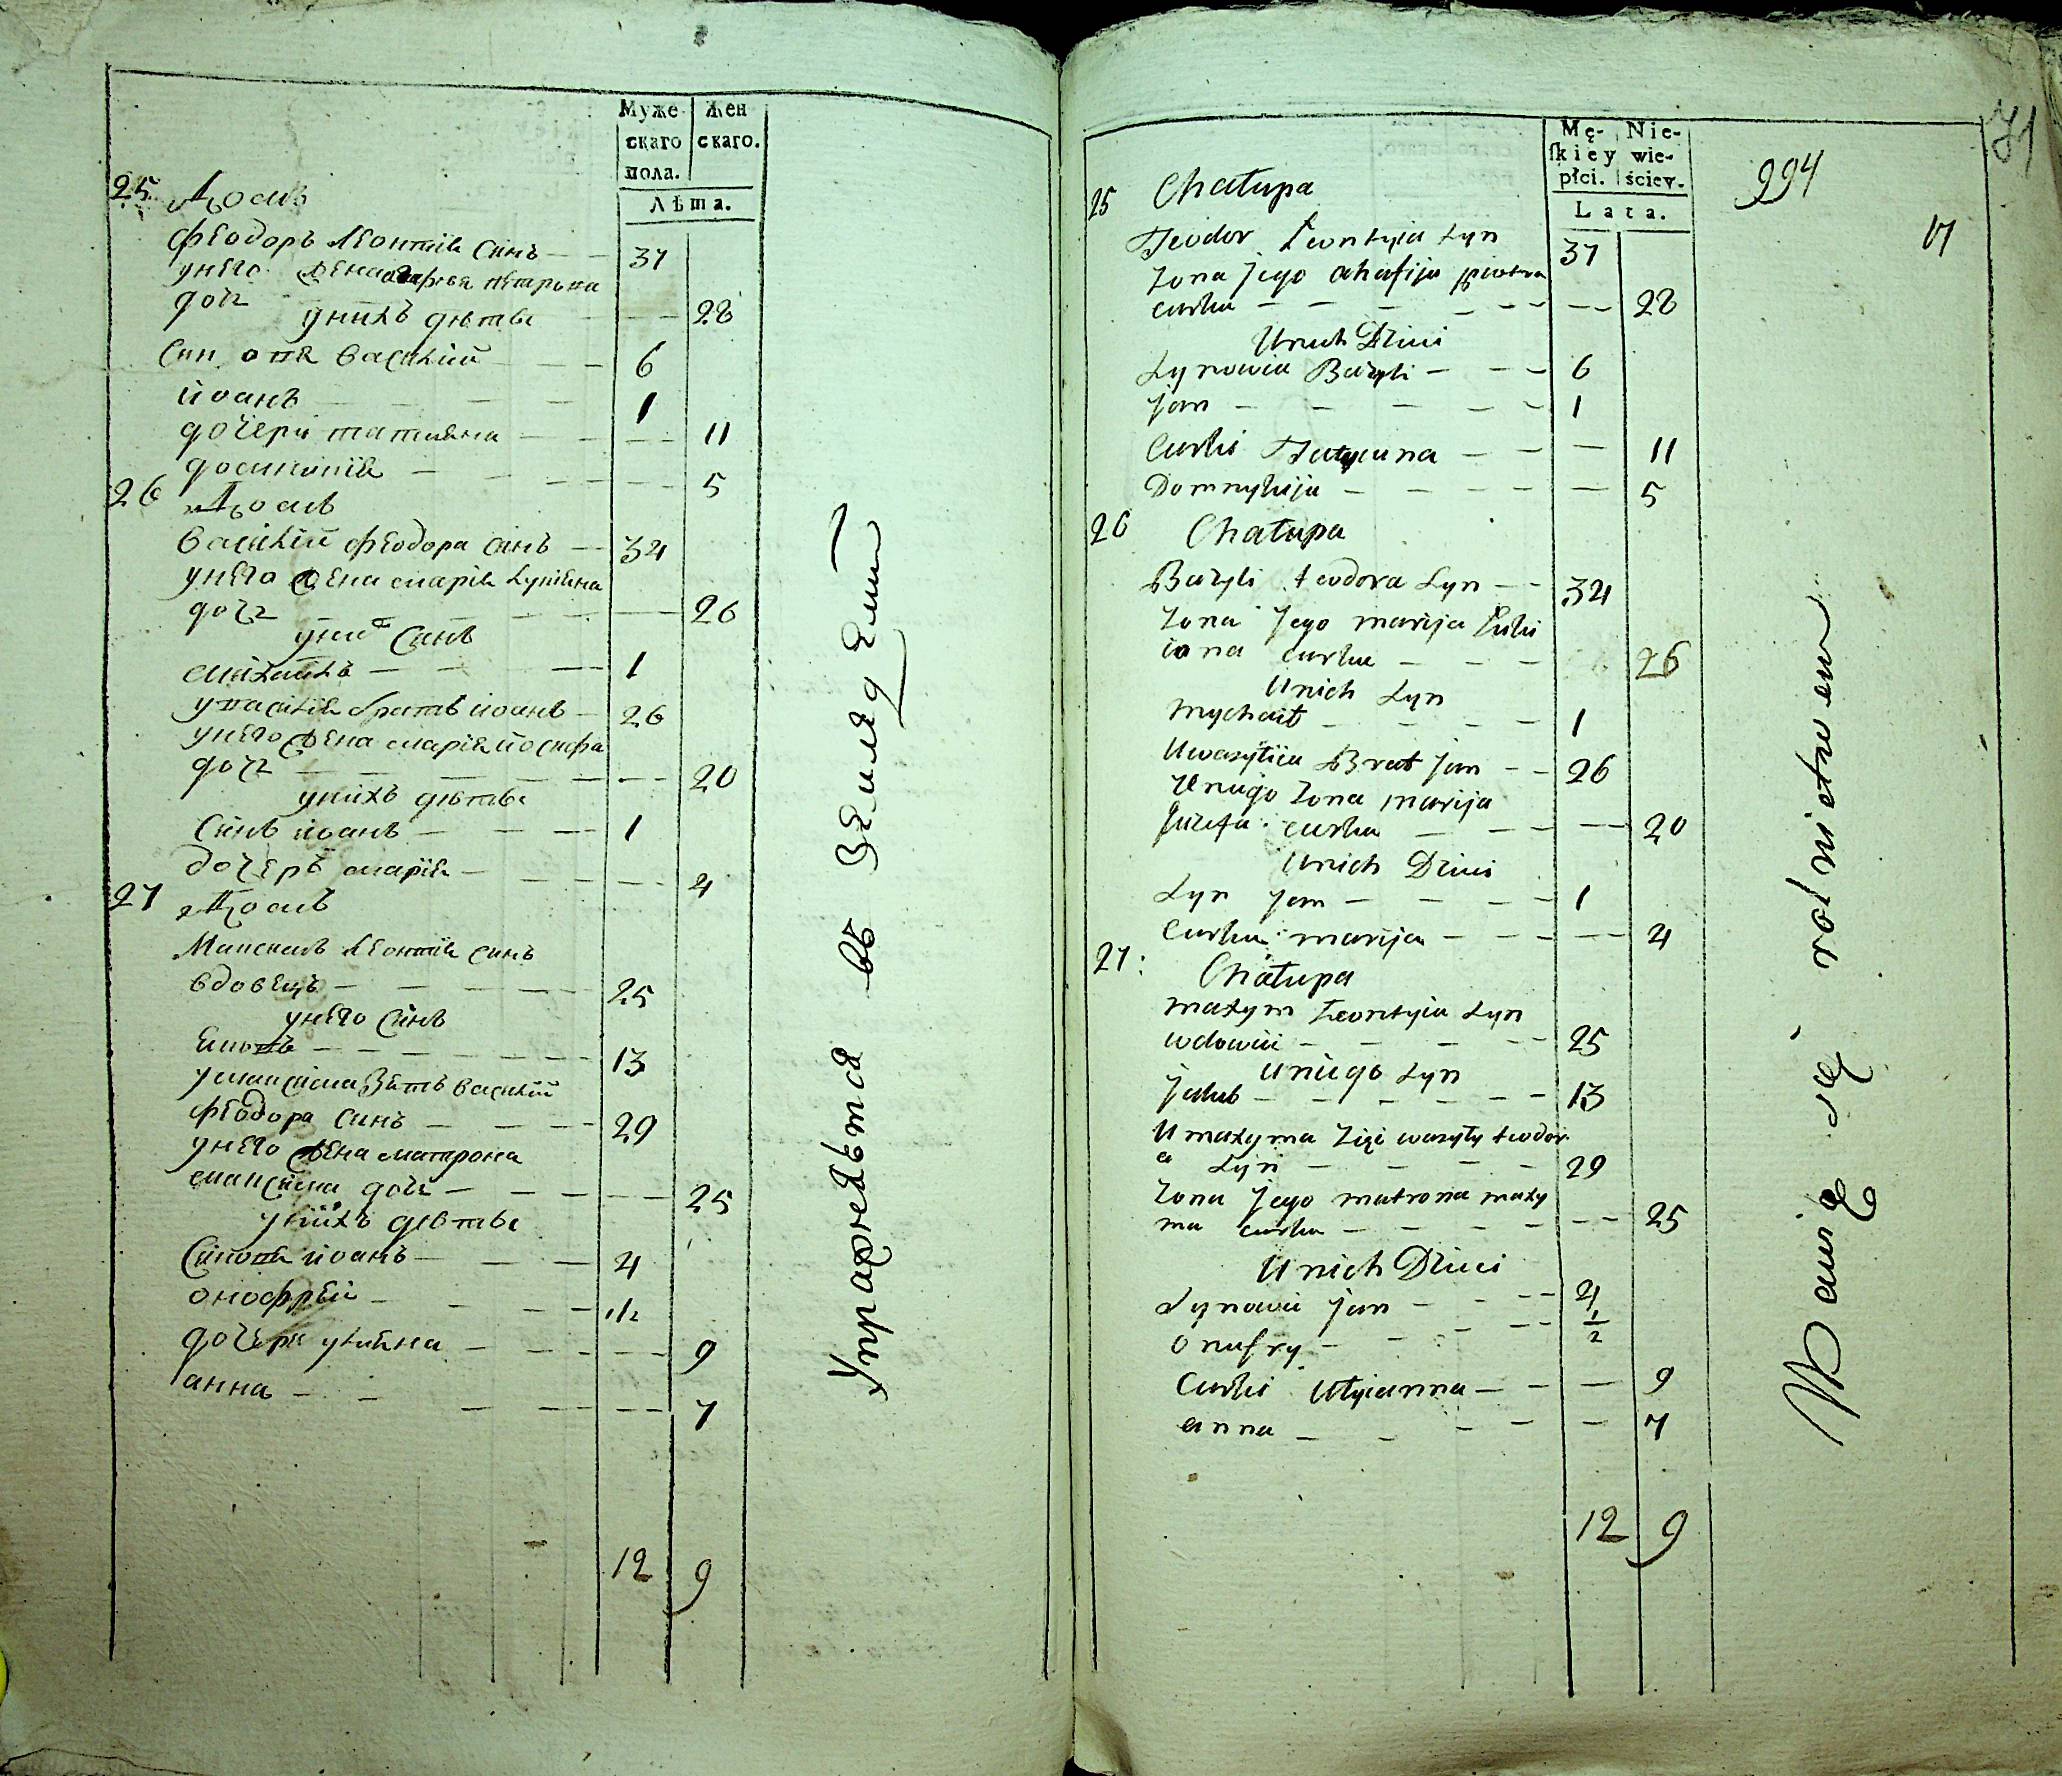 Муже Жен
скаго скаго.
пола.
Лѣта.
25 Домъ
Феодоръ Леонтія Синъ — — 37
унего жена агафія петрова
дочь — — 28
унихъ дѣтвы
Синове Василій — — 6
Иоанъ — — — — 1
дочери татияна — — — — 11
домникия — — — — — 5
26 Домъ
Василій Феодора Синъ — — 34
унего жена марія Лукіяна
дочь — — — — 26
унихъ Синъ
михаилъ — — — — 1
у василія братъ иоанъ — 26
унего жена марія иосифа
дочь — — — — — — — 20
унихъ дѣтвы
Синъ иоанъ — — — — 1
дочеръ марія — — — — — 4
27 Домъ
Максимъ Леонтія Синъ
вдовецъ — — — — — 25
унего Синъ
— — — — — — — 13
у максима Зять василій
Феодора Синъ — — — — 29
унего жена матрона
максима дочь — — — — — 25
унихъ дѣтвы
Синове иоанъ — — — 4
онофрей — — — — — 1/2
дочери улияна — — — — — 9
анна — — — — — — — 7
12 9
Упражнеятся въ Земледеліи
Mę- Nie-
ſkiey wie-
płci. ściey.
Lata.
994
71
17
25 Chałupa
Teodor Leontyia Syn 37
Zona Jego ahafija piotra
curka — — — — — — — 28
Unich Dzieci
Synowie Bazyli — — — 6
Jan — — — — — — 1
Curki Tatyanna — — — 11
Domnykija — — — — — 5
26 Chałupa
Bazyli teodora Syn — — 34
Zona Jego marija Łuki
iana curka — — — 26
Unich Syn
mychaił — — — — — 1
Uwasylia Brat Jan — — 26
Uniego Zona marija
Juzefa curka — — — — 20
Unich Dzieci
Syn Jan — — — — — 1
Curka marija — — — — — 4
27: Chałupa
maxym Leontyia Syn
wdowiec — — — — — 25
Uniego Syn
Jakub — — — — — — 13
U maxyma Zięć wasyly teodor
a Syn — — — — 29
Zona Jego matrona maxy
ma curka — — — — — — 25
Unich Dzieci
Synowie Jan — — — — 4
Onufry — — — — — 1/2
Curki Ulyianna — — — 9
anna — — — — — 7
12 9
Bawią się rolnictwem